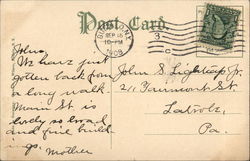 Post Card
N.Y.
SEP 15
10-PM
1909
3
C
John,
We have just
gotten back from
a long walk.
Main St. is
lovely so broad
and fine build
ings.
Mother
John S. Lightcap Jr.
211 Fairmont St.
Latrobe,
Pa.